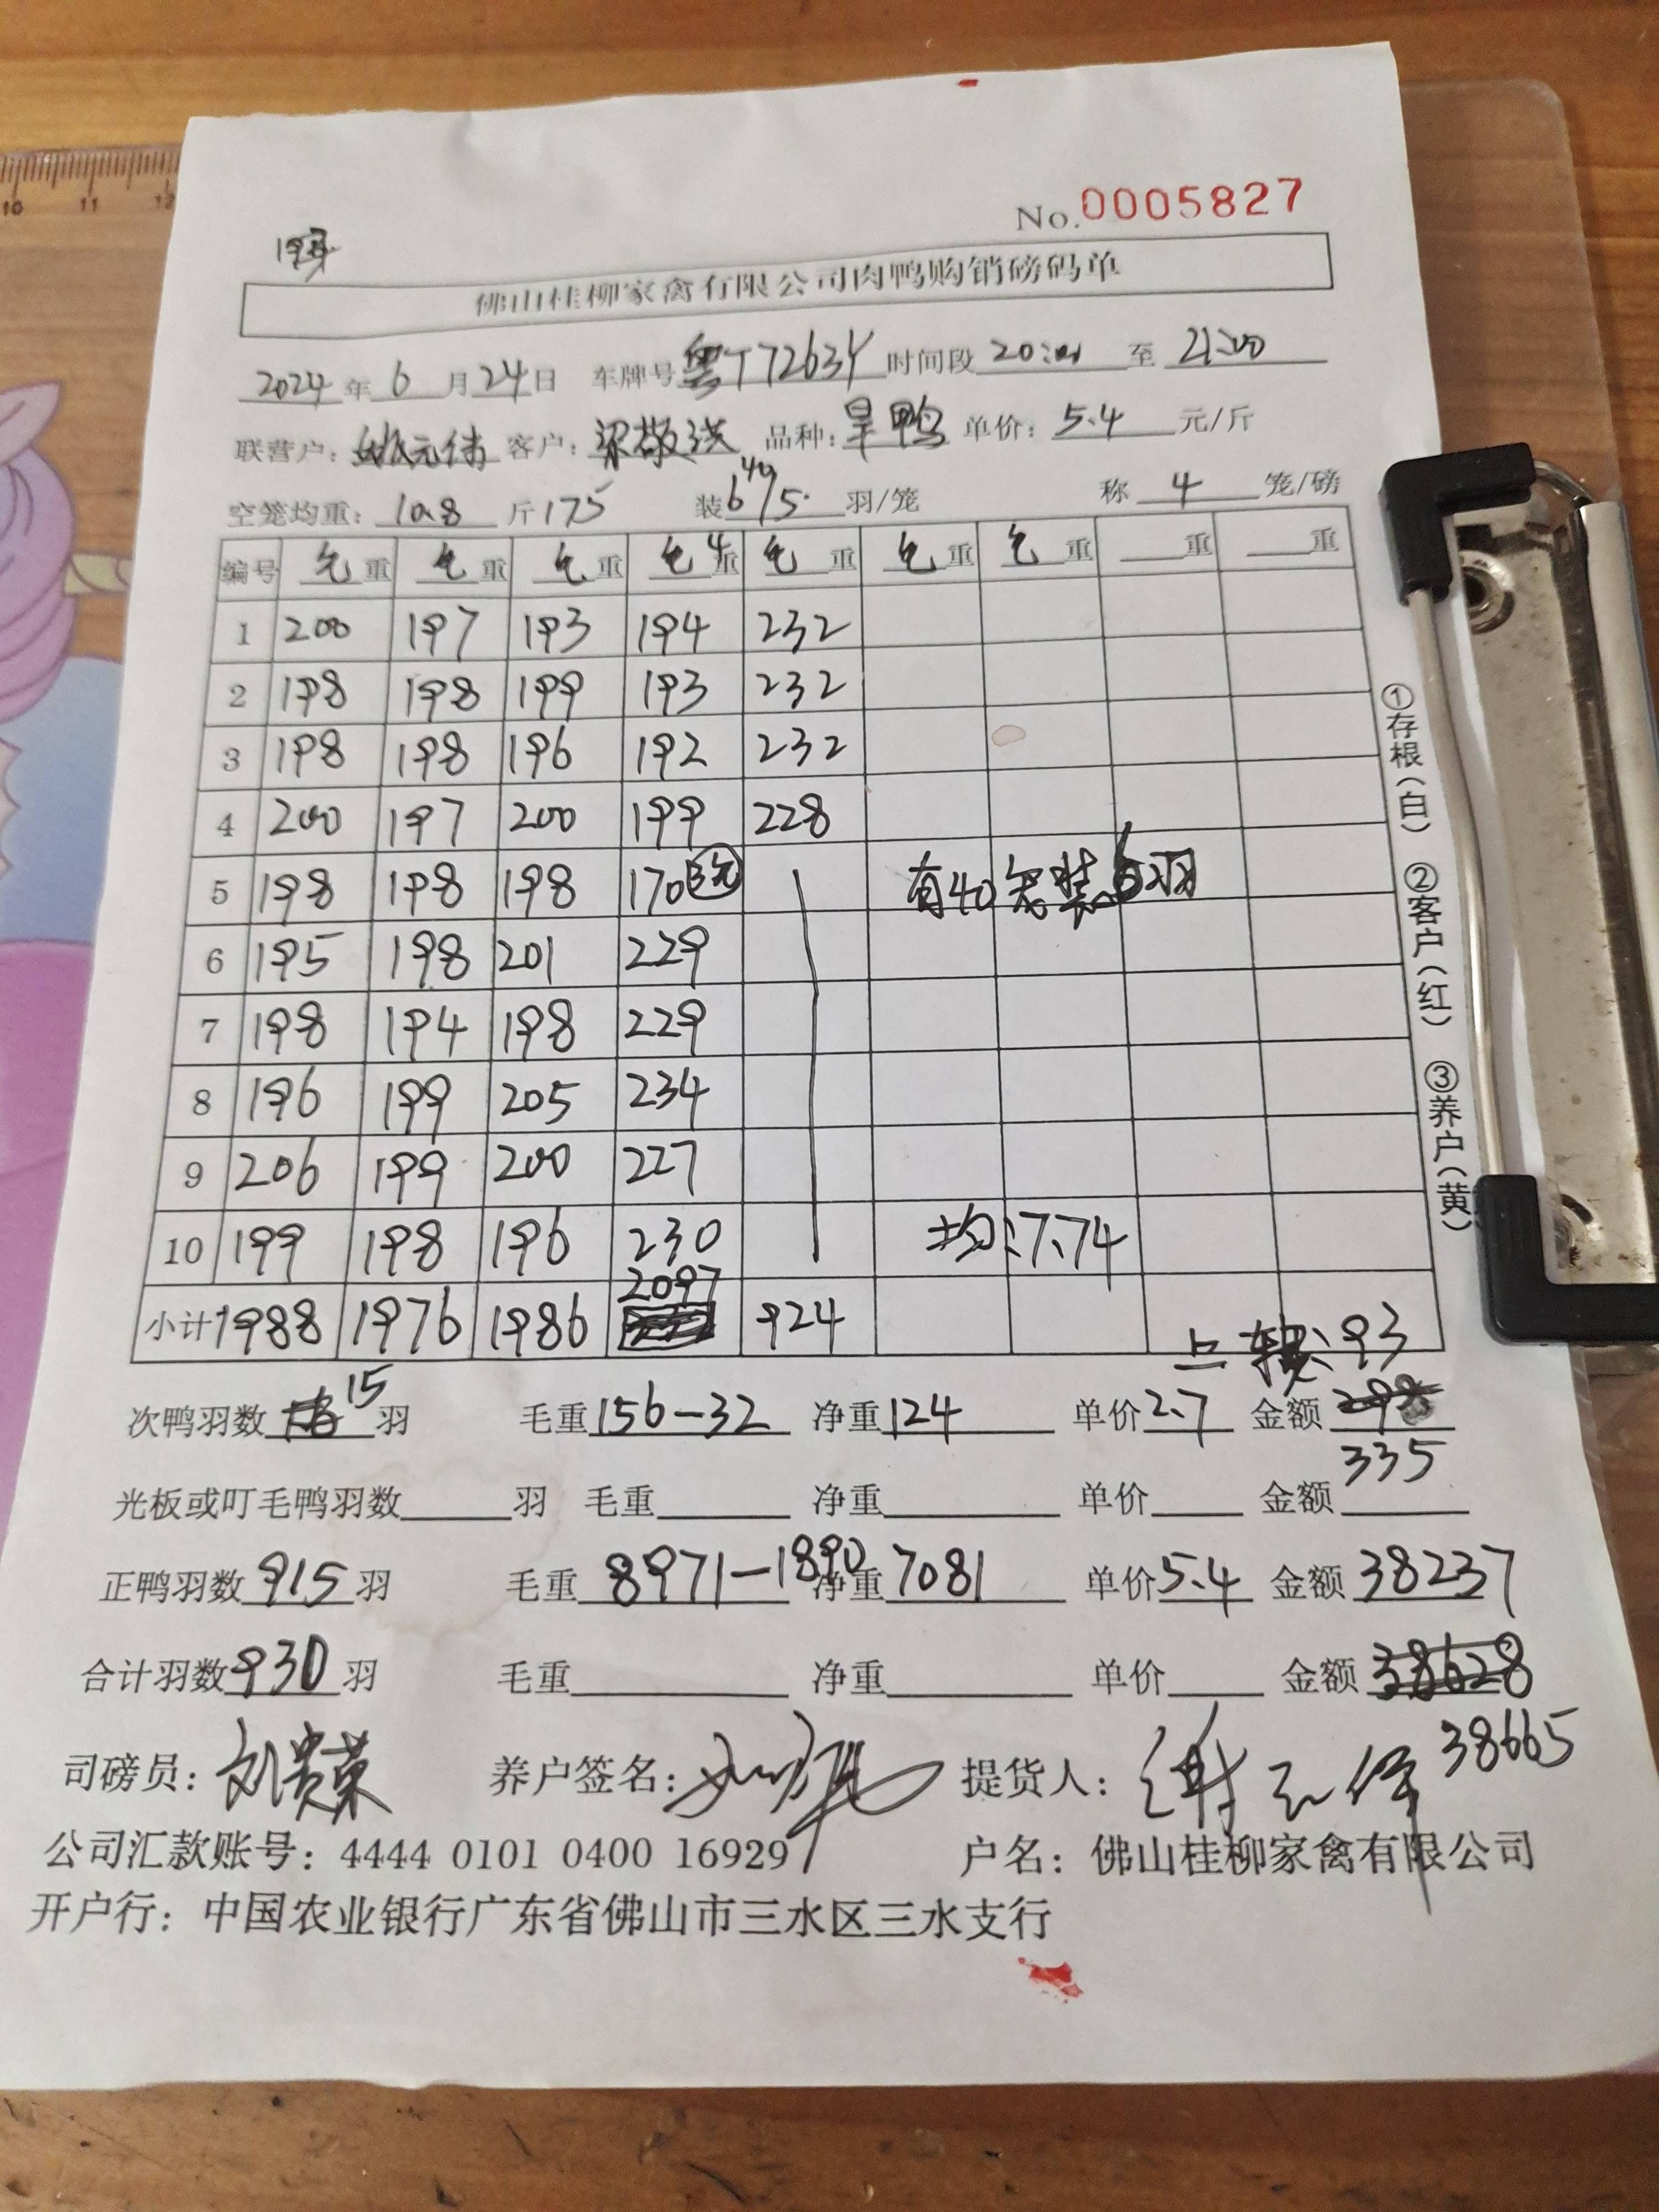 No.0005827
佛山桂柳家禽有限公司肉鸭购销磅码单
2024年6月24日 车牌号粤T7263Y时间段20:00至21:00
联营户:姚元伟 客户:梁敬洪 品种:旱鸭 单价:5.4元/斤
40
空笼均重:10.8斤175 装6/5.羽/笼 称4笼/磅
编号 毛重 毛重 毛重 毛重 毛重 毛重 毛重 重 重
1 200 197 193 194 232
2 198 198 199 193 232
3 198 198 196 192 232
4 200 197 200 199 228
5 198 198 198 170 有40笼装6羽
6 195 198 201 229
7 198 194 198 229
8 196 199 205 234
9 206 199 200 227
10 199 198 196 230 均:7.74
2097
小计 1988 1976 1986 924
93
次鸭羽数15羽 毛重156-32 净重124 单价2.7 金额298
335
光板或叮毛鸭羽数 羽 毛重 净重 单价 金额
正鸭羽数915羽 毛重8971-1890 净重7081 单价5.4 金额38237
合计羽数930羽 毛重 净重 单价 金额38628
38665
司磅员:刘贵荣 养户签名: 提货人:
公司汇款账号:4444 0101 0400 16929 户名:佛山桂柳家禽有限公司
开户行:中国农业银行广东省佛山市三水区三水支行
①存根(白) ②客户(红) ③养户(黄)